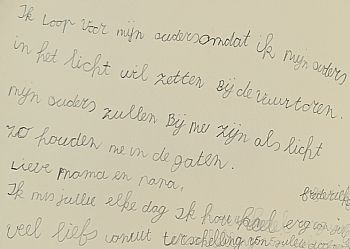 Ik Loop Voor mijn ouders omdat ik mijn ouders
in het licht wil zetten Bij de vuurtoren.
mijn ouders zullen Bij me zijn als licht
zo houden me in de gaten.
Lieve mama en papa,
Ik mis jullie elke dag Ik hou heel erg van
veel liefs vanuit terschelling van jullie